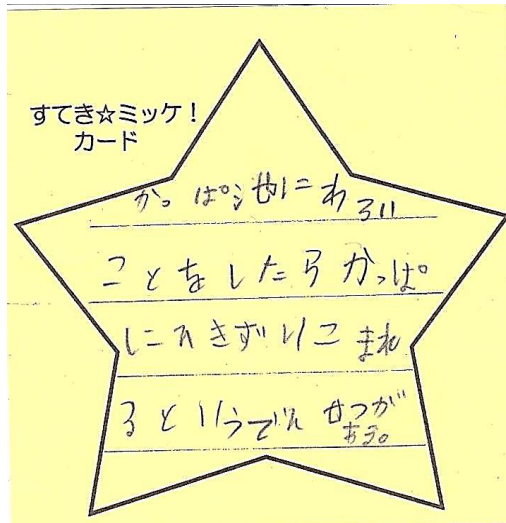 すてき☆ミッケ！
カード
かっぱ池にわるい
ことをしたらかっぱ
にひきずりこまれ
るというでんせつが
ある。